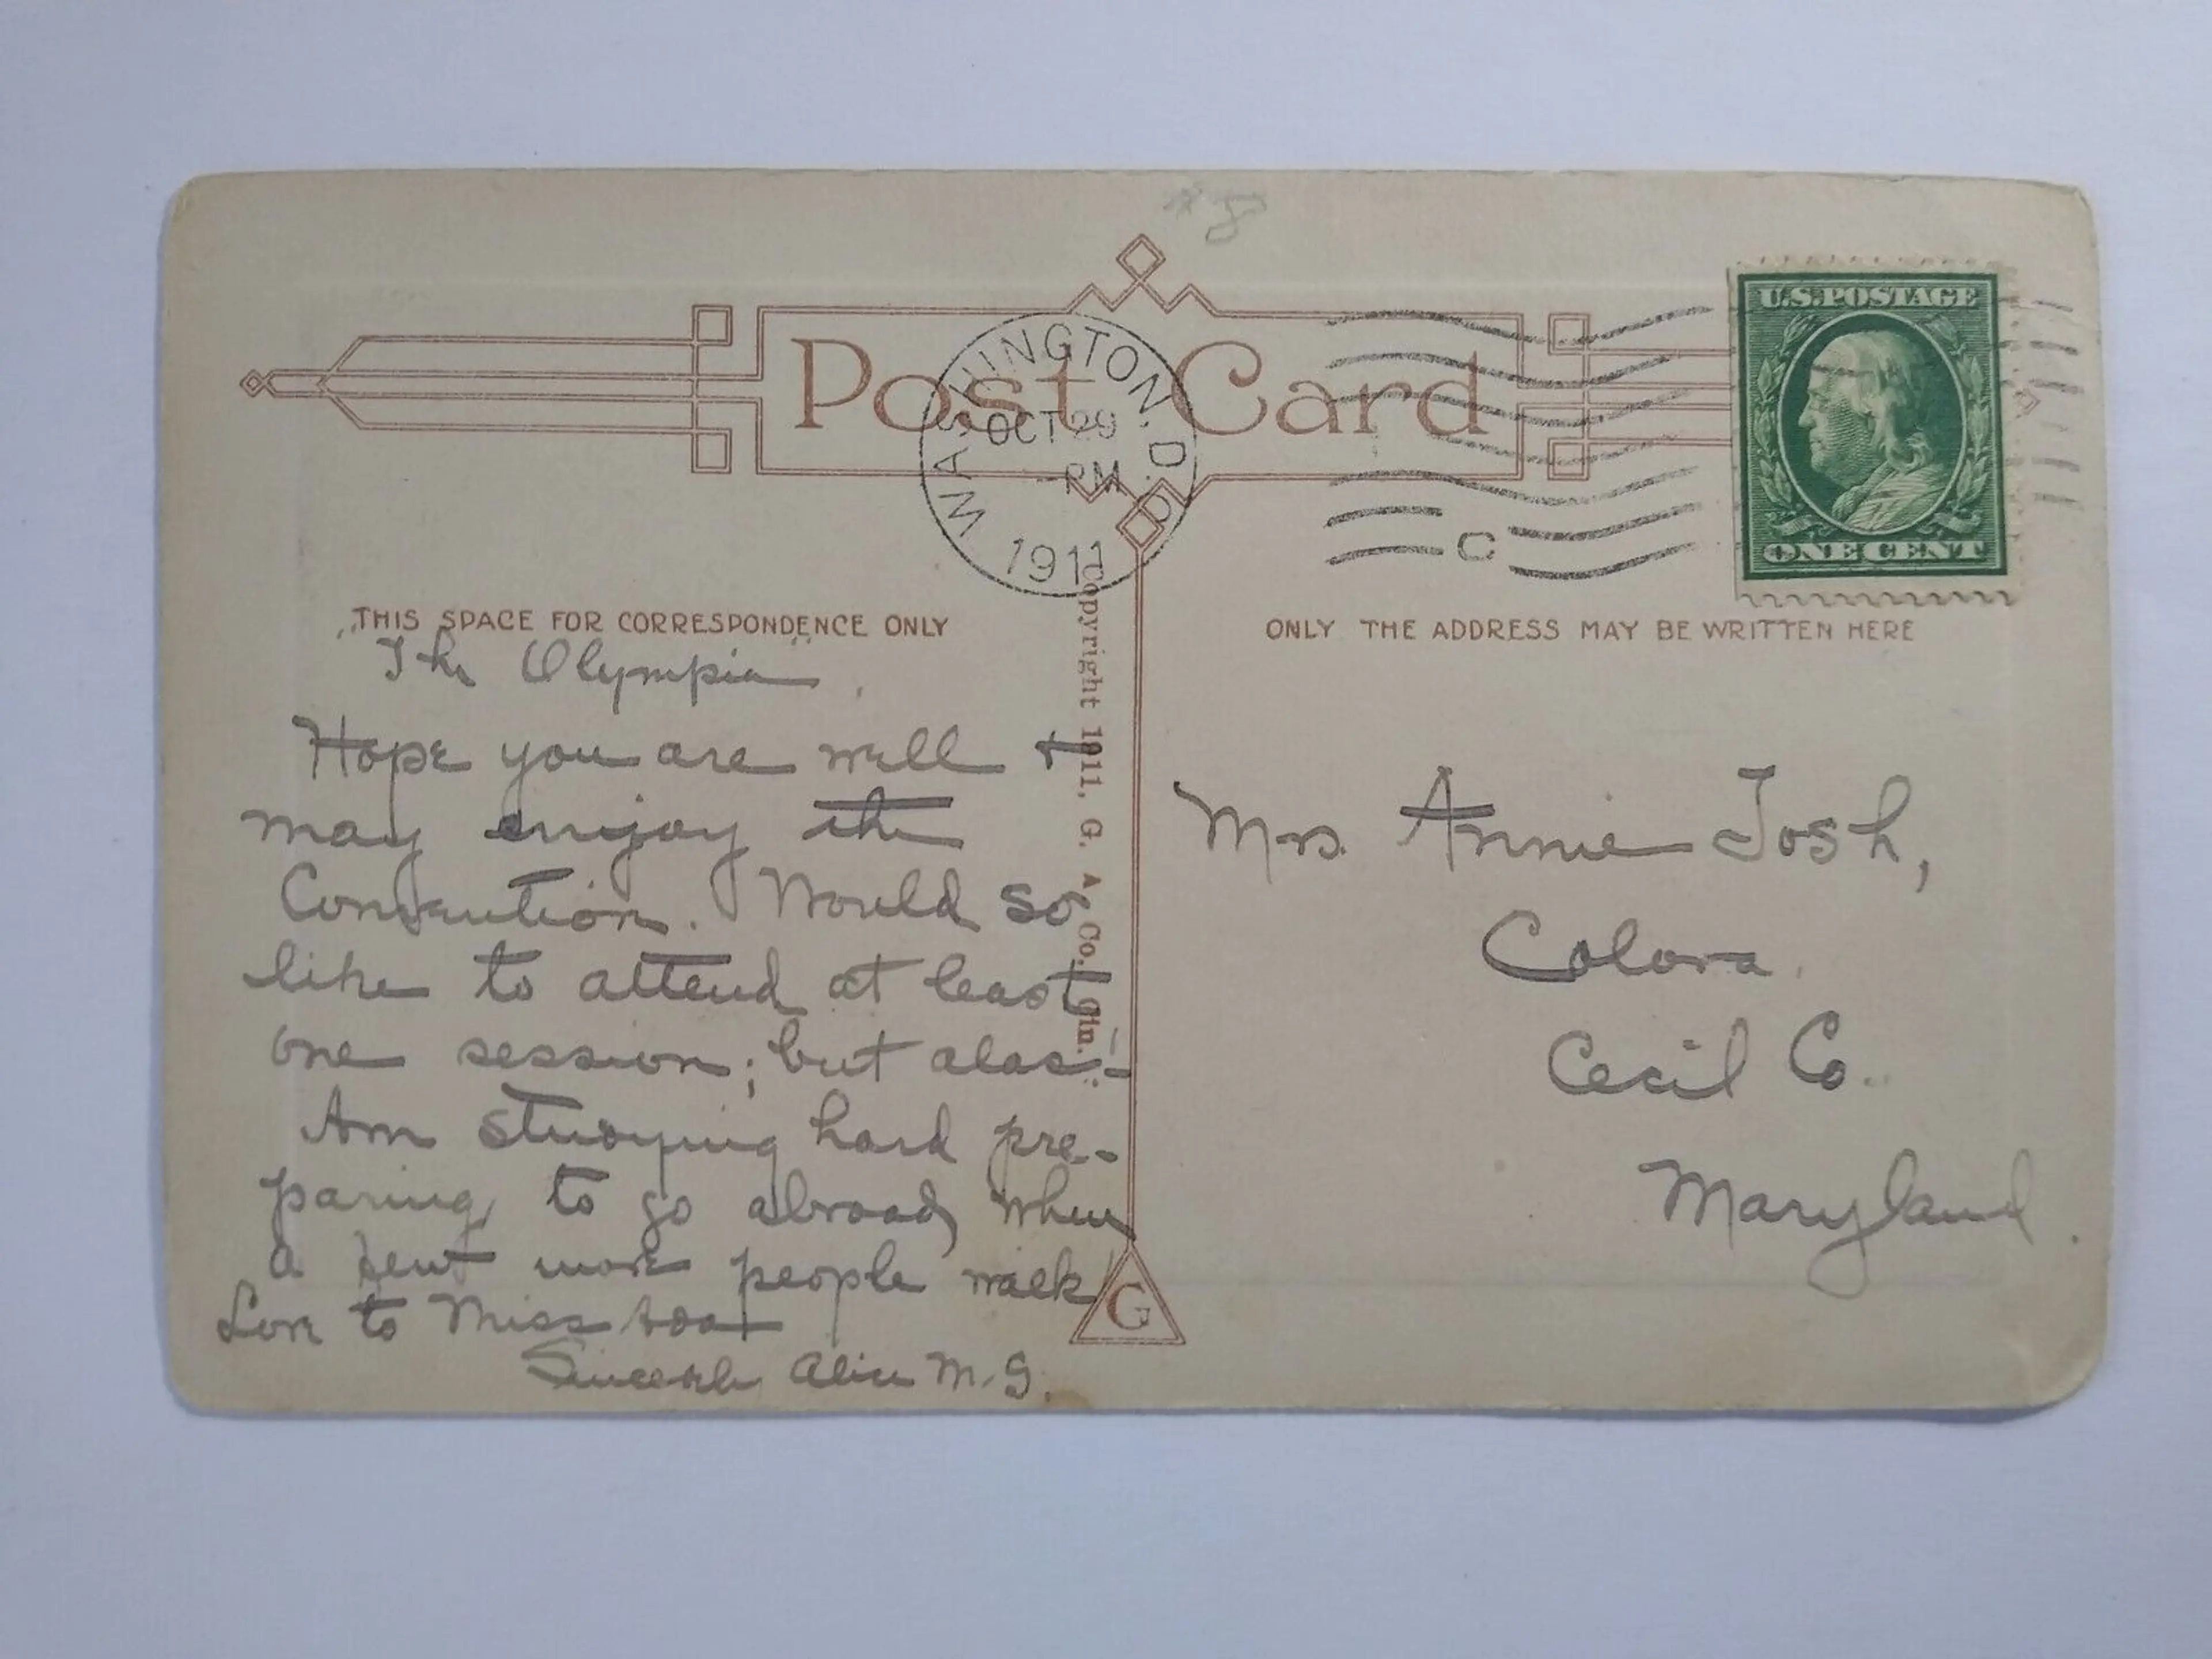 Post Card
WASHINGTON, D.C.
OCT 29
-PM
1911
C
U.S. POSTAGE
ONE CENT
THIS SPACE FOR CORRESPONDENCE ONLY
ONLY THE ADDRESS MAY BE WRITTEN HERE
"The Olympia"
Hope you are well +
may enjoy the
Convention. Would so
like to attend at least
one session; but alas!
Am studying hard pre-
paring to go abroad, when
a few more people
Love to Miss Ada
Sincerely Alice M. G.
Copyright 1911, G. A. Co. Cin.
G
Mrs. Annie Tosh,
Colora.
Cecil Co.
Maryland.